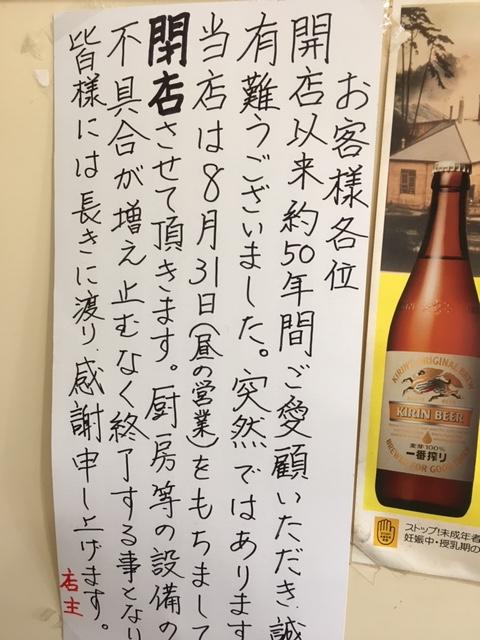 お客様各位
開店以来約50年間ご愛顧いただき誠
有難うございました。突然ではあります
当店は8月31日(昼の営業)をもちまして
閉店させて頂きます。厨房等の設備の
不具合が増え止むなく終了する事となり
皆様には長きに渡り感謝申し上げます。
店主
KIRIN'S ORIGINAL BREW
KIRIN BEER
麦芽100%
一番搾り
BREWED FOR GOOD
ストップ!未成年者
妊娠中・授乳期の